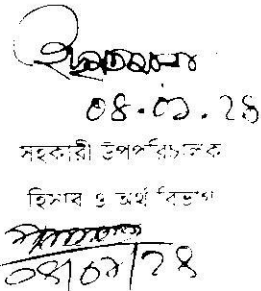 ০৪.০১.২৪
সহকারী উপপরিচালক
হিসাব ও অর্থ বিভাগ
০৪/০১/২৪